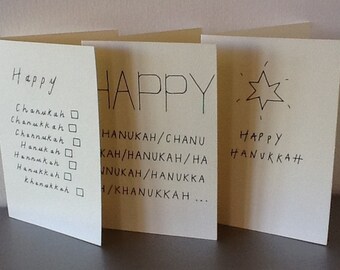 Happy
Chanukah
Chanukkah
Channukah
Hanukah
Hannukah
Hanukkah
Khanukkah
HAPPY
HANUKAH/CHANU
KAH/HANUKAH/HA
NNUKAH/HANUKKA
H/KHANUKKAH ...
HAPPY
HANUKKAH